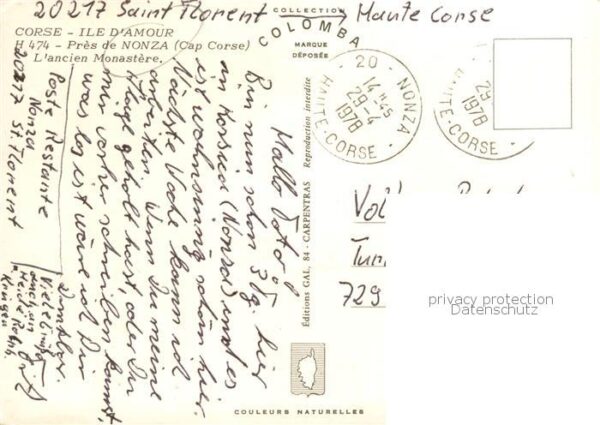 20217 Saint Florent Haute Corse
COLLECTION
COLOMBA
MARQUE
DÉPOSÉE
CORSE - ILE D'AMOUR
H 474 - Près de NONZA (Cap Corse)
L'ancien Monastère.
20 - NONZA
14 H 45
29-4
1978
HAUTE-CORSE
29
1978
HAUTE-CORSE
Hallo
Bin nun schon 3 Tg. hier
in Korsika (Nonza) und es
ist wahnsinnig schön hier.
Nächste Woche kann ich
arbeiten. Wenn Du meine
geholt hast, oder Du
mir vorher schreiben kannst,
was los ist wäre ich Dir
dankbar.
Viele Grüße
Poste Restante
Nonza
20217 St. Florent
Éditions GAL, 84 - CARPENTRAS Reproduction interdite
729
privacy protection
Datenschutz
COULEURS NATURELLES